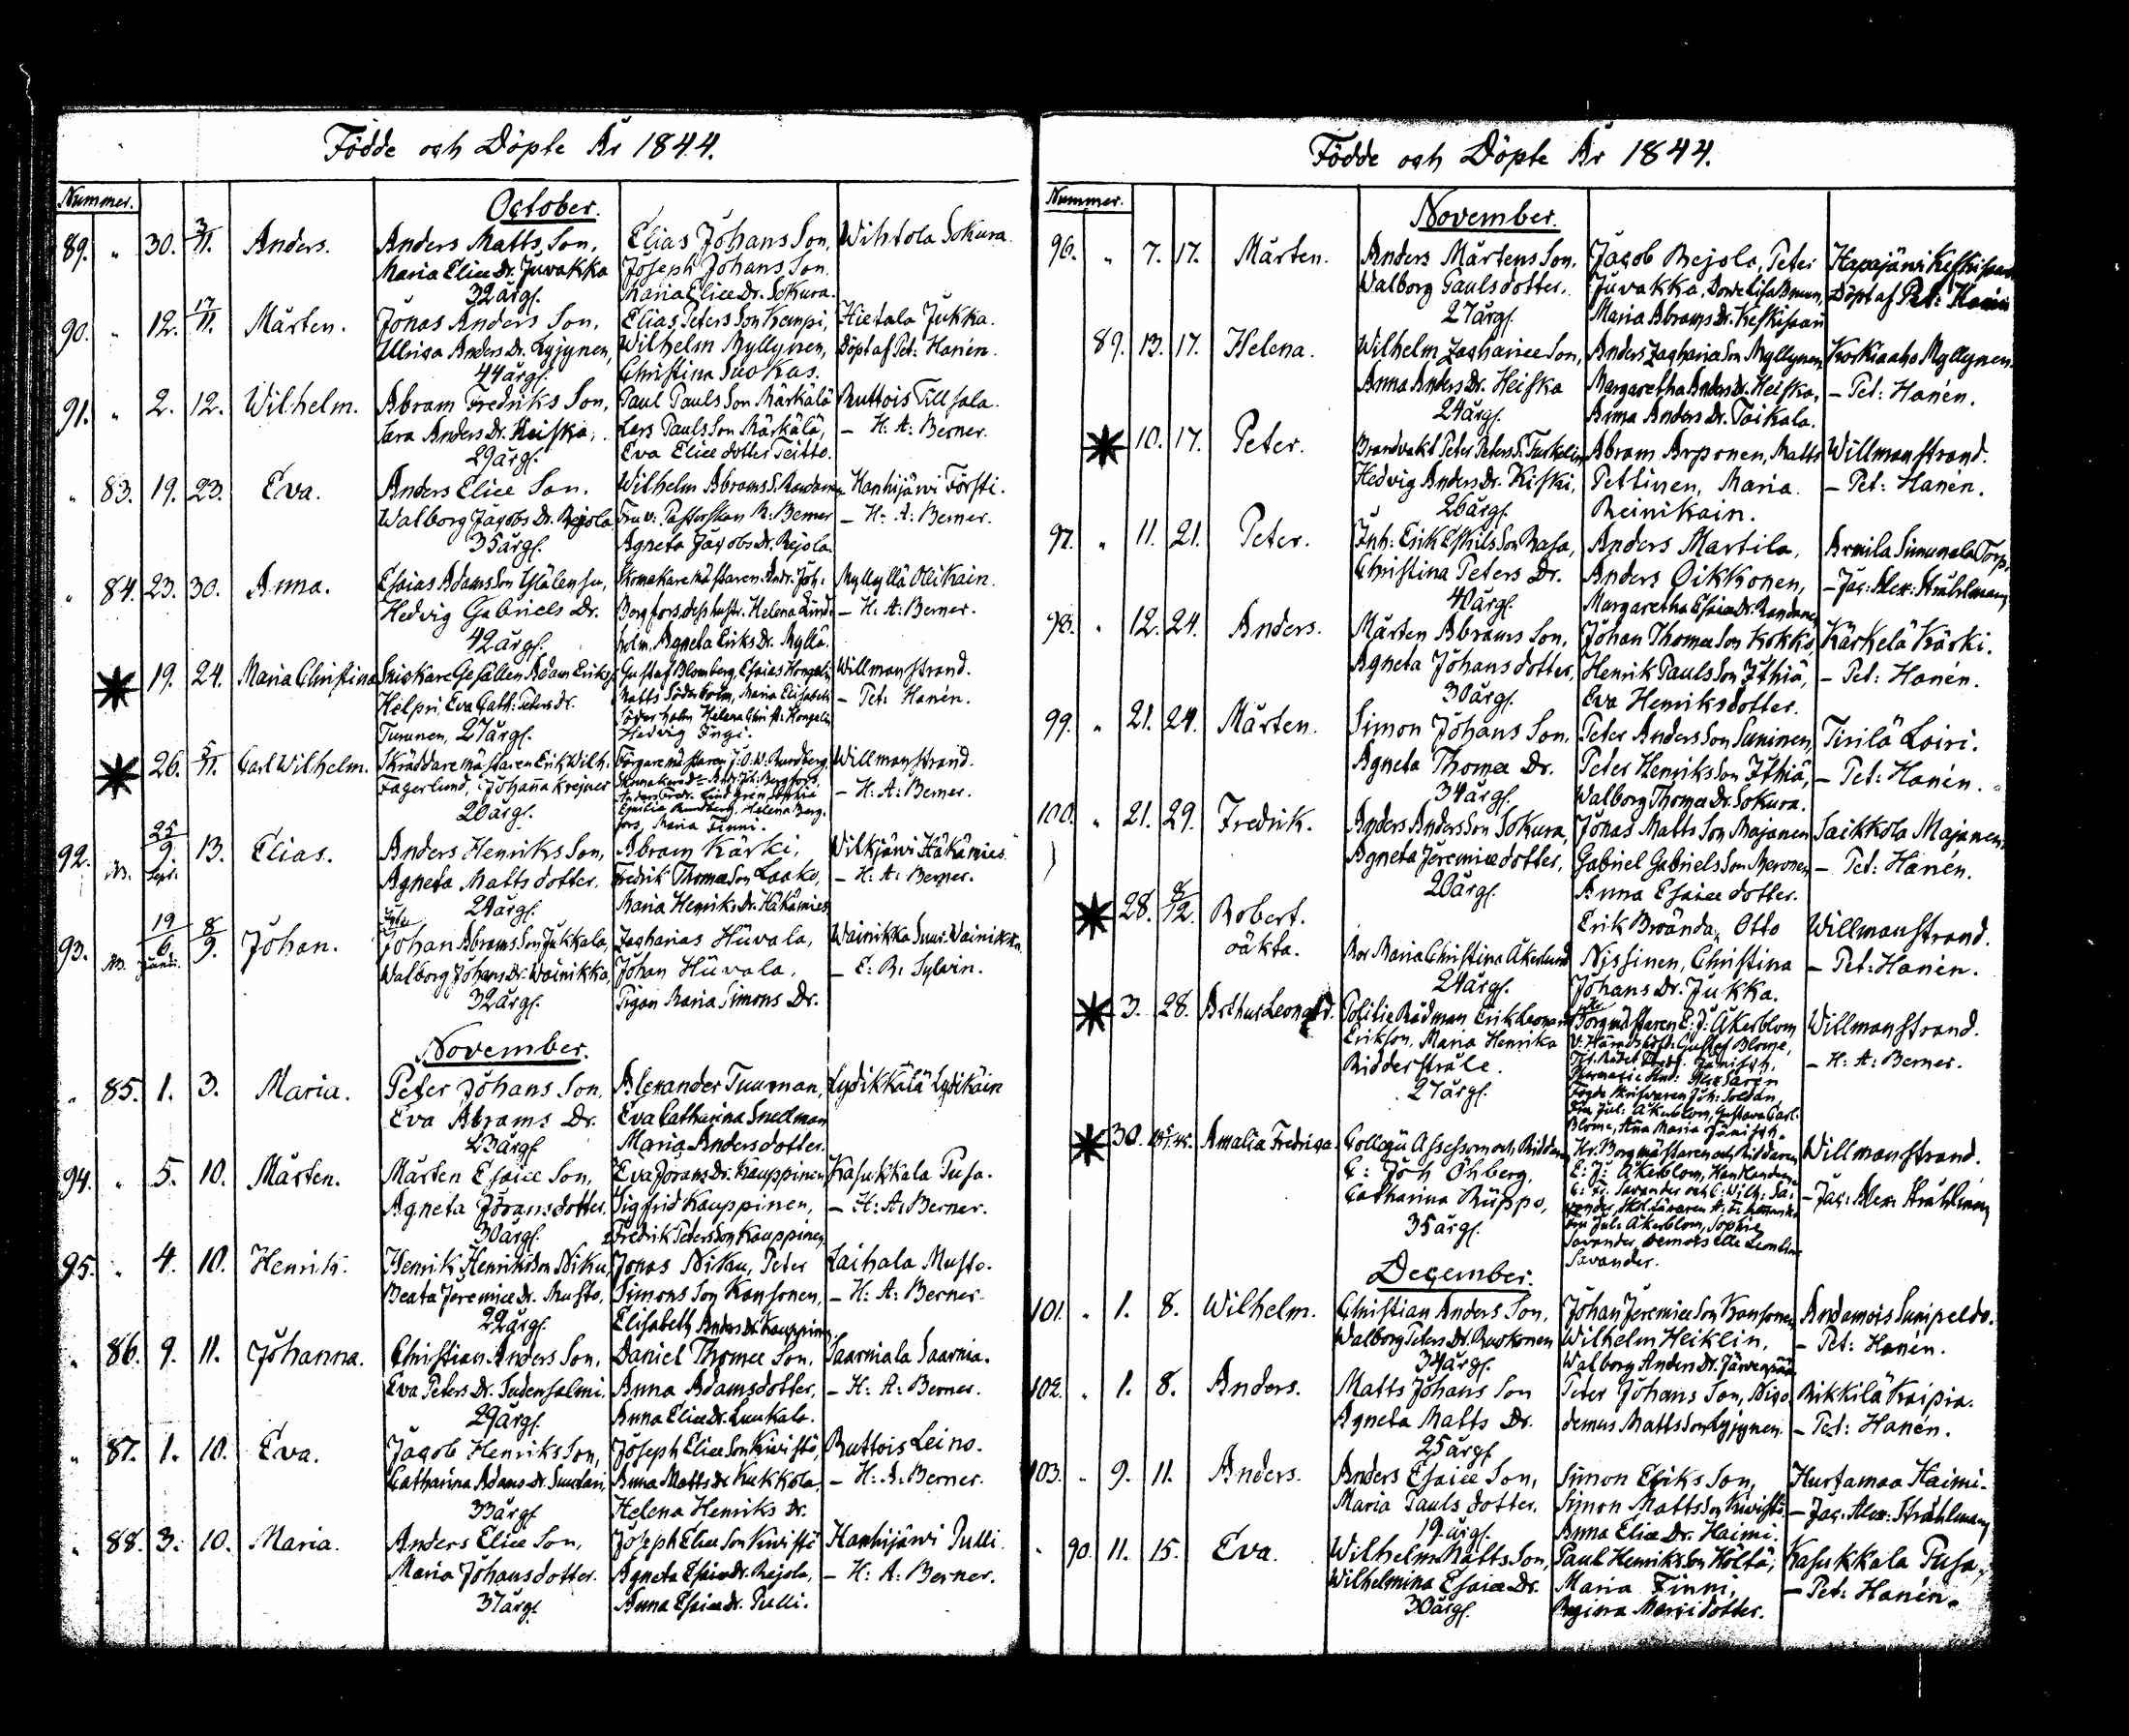 Födde och Döpte År 1844.
Nummer.
October.
89. " 30. 3/11. Anders. Anders Matts Son, Elias Johans Son, Wihtola Sokura.
Maria Eliæ Dr. Juvakka Joseph Johans Son.
32 årg. Maria Eliæ Dr. Sokura.
90. " 12. 17/11. Mårten. Jonas Anders Son, Elias Peters Son Kempi, Hietala Jukka.
Ulrica Anders Dr. Lyjynen, Wilhelm Myllynen, Döpt af Pet: Hanén.
44 årg. Christina Suokas.
91. " 2. 12. Wilhelm. Abram Fredriks Son, Paul Pauls Son Märkälä Ruttois Tillsala.
Sara Anders Dr. Heiska, Lars Pauls Son Märkälä, – H: A: Berner.
29 årg. Eva Eliæ dotter Teitto.
" 83. 19. 23. Eva. Anders Eliæ Son. Wilhelm Abrams S. Randanen Hanhijärvi Försti.
Walborg Jacobs Dr. Rejola Fru v: Pastorskan M: Berner – H: A: Berner.
35 årg. Agneta Jacobs Dr. Rejola.
" 84. 23. 30. Anna. Esaias Adams Son Skomakare mästaren Andr. Joh: Myllylä Ollikain.
Hedvig Gabriels Dr. Bergfors Helena Lind- – H: A: Berner.
42 årg. holm, Agneta Eriks Dr. Myllä.
19. 24. Maria Christina Snickare Gesällen Adam Eriks S. Gustaf Blomberg, Esaias Hongelin Willmanstrand.
Helpri, Eva Cath: Peters Dr. Matts Söderholm, Maria Elisabeth – Pet: Hanén.
Turunen, 27 årg. Söderholm Helena Chri A: Hongelin
Hedvig Ingi.
26. 5/11. Carl Wilhelm. Skräddare mästaren Erik Wilh. Färgare mästaren J: O: W: Rundberg, Willmanstrand.
Fagerlund, Johanna Krejner Skomakare Do Andr: Joh: Bergfors, – H: A: Berner.
20 årg. Anders Fredr. Lindgren, Sophia
Emilia Rundberg, Helena Berg-
fors, Maria Finni.
92. 25/9 Sept. 13. Elias. Anders Henriks Son, Abram Kärki, Wilkjärvi Häkämies.
Agneta Matts dotter, Fredrik Thomæ Son Laako, – H: A: Berner.
24 årg. Maria Henriks Dr. Häkämies
93. 19/6 Junii. 8/9. Johan. Johan Abrams Son Jukkala, Zacharias Hüvala, Wainikka Suur-Wainikka
Walborg Johans Dr. Wainikka, Johan Hüvala, – E: R: Sylvin.
32 årg. Pigan Maria Simons Dr.
November.
" 85. 1. 3. Maria. Peter Johans Son, Alexander Tuurman, Lydikkälä Lydikäin
Eva Abrams Dr. Eva Catharina Snedman
23 årg Maria Andersdotter.
94. " 5. 10. Mårten. Mårten Esaiæ Son, Eva Jörans Dr. Kauppinen, Kasukkala Pusa.
Agneta Jöransdotter, Sigfrid Kauppinen, – H: A: Berner.
30 årg. Fredrik Peters Son Kauppinen
95. " 4. 10. Henrik. Henrik Henriks Son Niku, Jonas Niku, Peter Laihala Musto.
Beata Jeremiæ Dr. Musto, Simons Son Kansonen, – H: A: Berner.
22 årg. Elisabeth Anders Dr. Kauppinen.
" 86. 9. 11. Johanna. Christian Anders Son, Daniel Thomæ Son, Saarniala Saarnia.
Eva Peters Dr. Sudensalmi, Anna Adamsdotter, – H: A: Berner.
29 årg. Anna Eliæ Dr. Luukala.
" 87. 1. 10. Eva. Jacob Henriks Son, Joseph Eliæ Son Kivistö, Ruttois Leino.
Catharina Adams Dr. Suntari, Anna Matts Dr. Kukkola, – H: A: Berner.
33 årg Helena Henriks Dr.
" 88. 3. 10. Maria. Anders Eliæ Son, Joseph Eliæ Son Kivistö Hanhijärvi Pulli.
Maria Johansdotter. Agneta Esaiæ Dr. Rejola, – H: A: Berner.
37 årg. Anna Esaiæ Dr. Pulli.
Födde och Döpte År 1844.
Nummer.
November.
96. " 7. 17. Mårten. Anders Mårtens Son. Jacob Rejola, Peter Hapajärvi Keskisaari
Walborg Paulsdotter, Juvakka, Döpt af Pet: Hanén
27 årg. Maria Abrams Dr. Keskisaari
89. 13. 17. Helena. Wilhelm Zachariæ Son, Anders Zacharia Son Myllynen Korkiaaho Myllynen.
Anna Anders Dr. Heiska Margaretha Anders Dr. Heiska, – Pet: Hanén.
24 årg. Anna Anders Dr. Toikala.
10. 17. Peter. Brandvakt Peter Peters S. Turkelin Abram Arponen, Matts Willmanstrand.
Hedvig Anders Dr. Kiski, Pettinen, Maria – Pet: Hanén.
26 årg. Reinikain.
97. " 11. 21. Peter. Inh: Erik Eskils Son Rasa, Anders Martila, Armila Simunala Torp.
Christina Peters Dr. Anders Oikkonen, – Jac: Alex: Strählmann
40 årg. Margaretha Esaiæ Dr. Randanen
98. " 12. 24. Anders. Mårten Abrams Son, Johan Thomæ Son Kokko, Kärkelä Kärki.
Agneta Johansdotter, Henrik Pauls Son Ithiä, – Pet: Hanén.
30 årg. Eva Henriksdotter.
99. " 21. 24. Mårten. Simon Johans Son, Peter Anders Son Suninen, Tirilä Loiri.
Agneta Thomæ Dr. Peter Henriks Son Ithiä, – Pet: Hanén.
34 årg. Walborg Thomæ Dr. Sokura.
100. " 21. 29. Fredrik. Anders Anders Son Sokura, Jonas Matts Son Majanen Saikkola Majanen.
Agneta Jeremiæ dotter, Gabriel Gabriels Son Meronen – Pet: Hanén.
20 årg. Anna Esaiæ dotter.
28. 8/12. Robert. Erik Brända, Otto Willmanstrand.
oäkta. Mor Maria Christina Åkerlund Nissinen, Christina – Pet: Hanén.
24 årg. Johans Dr. Jukka.
3. 28. Arthur Leonard. Politie Rådman Erik Leonard Borgmästaren E: J: Åkerblom Willmanstrand.
Erikson, Maria Henrika V: Häradshöfd: Gustaf Blome, – H: A: Berner.
Ridderstråle. Jänisch,
27 årg. Pharmacie Stud: Alex Sarén
Joh: Soldan,
Fru Jul: Åkerblom, Gustava Carl:
Blome, Anna Maria Jänisch.
30. Amalia Fredrica. Collegii Assessorn och Riddaren Hr. Borgmästaren och Riddaren Willmanstrand.
C: Joh Öhberg, E: J: Åkerblom, Handlanden – Jac: Alex: Strählmann
Catharina Rüppo, C: Fr: Savander och C: Wilh: Sa-
35 årg. vander, Skolläraren
Fru Jul: Åkerblom, Sophie
Savander, Demoiselle Leontine
Savander.
December.
101. " 1. 8. Wilhelm. Christian Anders Son, Johan Jeremiæ Son Kansonen Andamois Sunipeldo.
Walborg Peters Dr. Ruokonen Wilhelm Heiklin, – Pet: Hanén.
34 årg. Walborg Anders Dr. Järvenpää
102. " 1. 8. Anders. Matts Johans Son Peter Johans Son, Nico- Rikkilä Kaipia.
Agneta Matts Dr. demus Matts Son Lyjynen – Pet: Hanén.
25 årg
103. " 9. 11. Anders. Anders Esaiæ Son, Simon Eriks Son, Hurtamaa Haimi.
Maria Pauls dotter, Simon Matts Son Kivistö – Jac: Alex: Strählmann
19. årg. Anna Eliæ Dr. Haimi.
" 90. 11. 15. Eva. Wilhelm Matts Son, Paul Henriks Son Höltä, Kasukkala Pusa,
Wilhelmina Esaiæ Dr. Maria Finni, – Pet: Hanén.
30 årg. Regina Marsidotter.